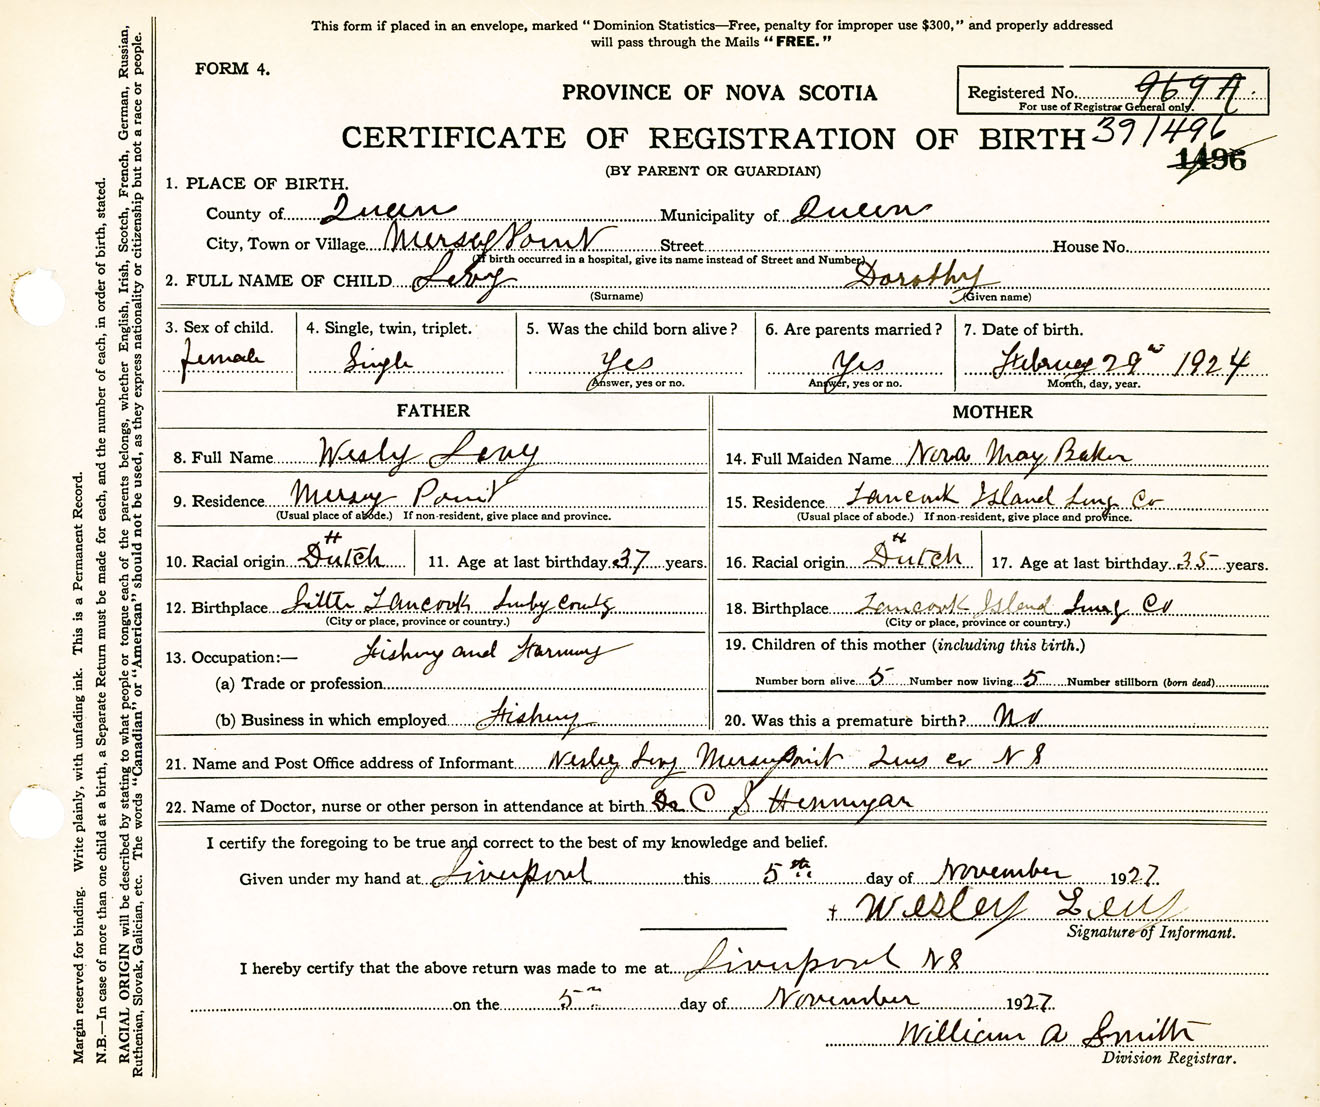 This form if placed in an envelope, marked "Dominion Statistics—Free, penalty for improper use $300," and properly addressed
will pass through the Mails "FREE."
FORM 4.
PROVINCE OF NOVA SCOTIA
Registered No. 969 A
For use of Registrar General only.
CERTIFICATE OF REGISTRATION OF BIRTH 39/496
1496
(BY PARENT OR GUARDIAN)
1. PLACE OF BIRTH.
County of Queen Municipality of Queen
City, Town or Village Mersey Point Street House No.
(If birth occurred in a hospital, give its name instead of Street and Number)
2. FULL NAME OF CHILD Levy Dorothy
(Surname) (Given name)
3. Sex of child. 4. Single, twin, triplet. 5. Was the child born alive? 6. Are parents married? 7. Date of birth.
female Single Yes Yes February 29 1924
Answer, yes or no. Answer, yes or no. Month, day, year.
FATHER MOTHER
8. Full Name Wesly Levy 14. Full Maiden Name Nora May Baker
9. Residence Mersey Point 15. Residence Tancook Island Lung Co
(Usual place of abode.) If non-resident, give place and province. (Usual place of abode.) If non-resident, give place and province.
10. Racial origin Dutch 11. Age at last birthday 37 years. 16. Racial origin Dutch 17. Age at last birthday 35 years.
12. Birthplace Little Tancook 18. Birthplace Tancook Island Co
(City or place, province or country.) (City or place, province or country.)
19. Children of this mother (including this birth.)
13. Occupation:— Fishing and Farming
(a) Trade or profession Number born alive 5 Number now living 5 Number stillborn (born dead)
(b) Business in which employed Fishing 20. Was this a premature birth? No
21. Name and Post Office address of Informant Wesley Levy Mersey Point Co N S
22. Name of Doctor, nurse or other person in attendance at birth Dr C S Hennigar
I certify the foregoing to be true and correct to the best of my knowledge and belief.
Given under my hand at Liverpool this 5th day of November 1927
† Wesley Levy
Signature of Informant.
I hereby certify that the above return was made to me at Liverpool N S
on the 5 day of November 1927
William A Smith
Division Registrar.
Margin reserved for binding. Write plainly, with unfading ink. This is a Permanent Record.
N.B.—In case of more than one child at a birth, a Separate Return must be made for each, and the number of each, in order of birth, stated.
RACIAL ORIGIN will be described by stating to what people or tongue each of the parents belongs, whether English, Irish, Scotch, French, German, Russian,
Ruthenian, Slovak, Galician, etc. The words "Canadian" or "American" should not be used, as they express nationality or citizenship but not a race or people.